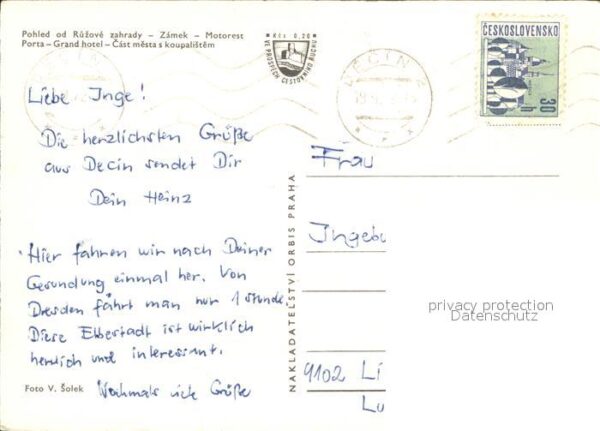 Pohled od Růžové zahrady – Zámek – Motorest
Porta – Grand hotel – Část města s koupalištěm
Kčs 0,20
VE PROSPĚCH CESTOVNÍHO RUCHU
DĚČÍN
ČESKOSLOVENSKO
30 h
Liebe Inge!
Die herzlichsten Grüße
aus Decin sendet Dir
Dein Heinz
Hier fahren wir nach Deiner
Gesundung einmal her. Von
Dresden fährt man nur 1 Stunde
Diese Elbestadt ist wirklich
herrlich und interessant.
Nochmals viele Grüße
Foto V. Šolek
NAKLADATELSTVÍ ORBIS PRAHA
Frau
Ingebu
9102 Li
Lu
privacy protection
Datenschutz